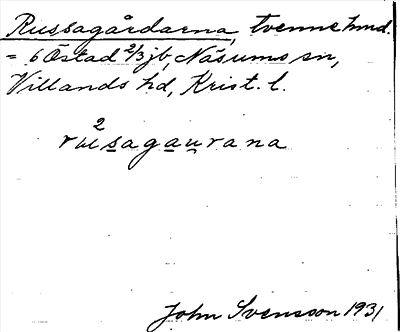 Russagårdarna, tvenne hmd.
= 6 Östad 2/3 jb, Näsums sn,
Villands hd, Krist. l.
2
rusagaurana
John Svensson 1931